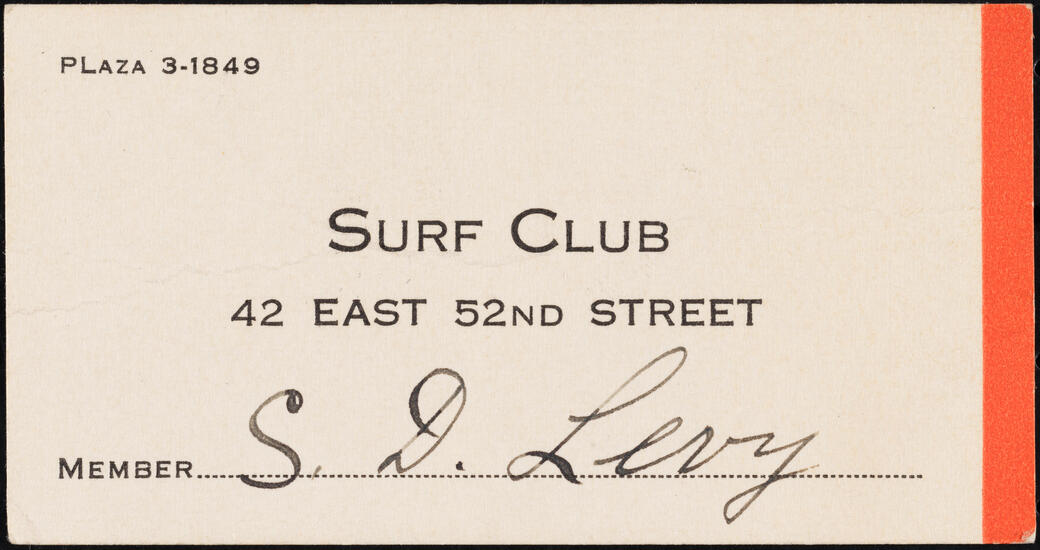 PLaza 3-1849
Surf Club
42 EAST 52ND STREET
Member S. D. Levy